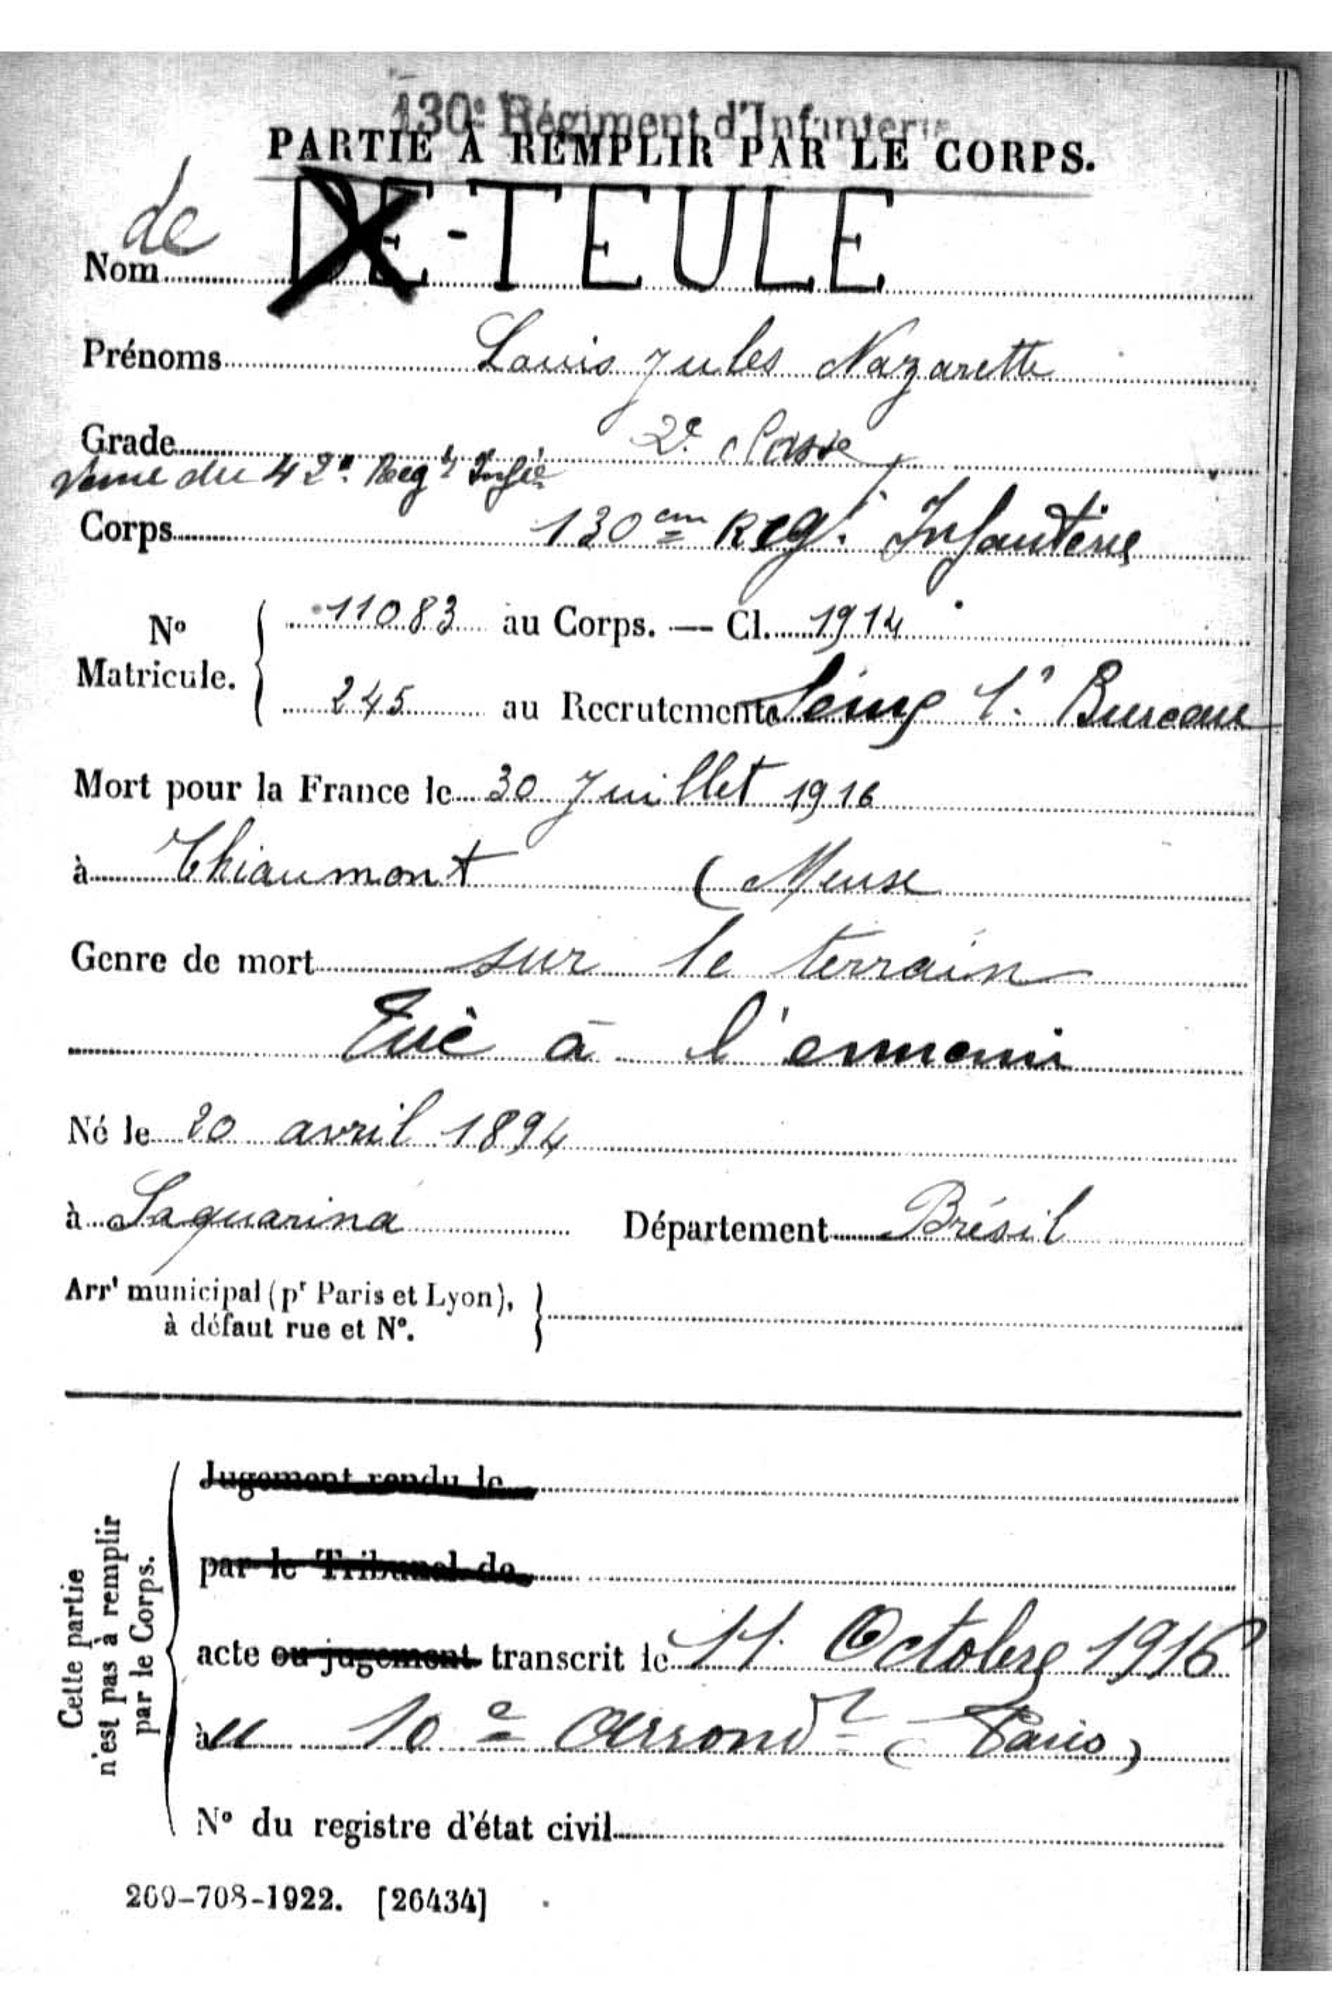 130e Régiment d'Infanterie
PARTIE À REMPLIR PAR LE CORPS.
de
Nom DE-TEULE
Prénoms Louis Jules Nazarette
Grade 2e Classe
venu du 42e Regt Infie
Corps 130em Regt Infanterie
No Matricule. 11083 au Corps. — Cl. 1914
245 au Recrutement Seine 1er Bureau
Mort pour la France le 30 Juillet 1916
à Thiaumont (Meuse
Genre de mort sur le terrain
Tué à l'ennemi
Né le 20 avril 1894
à Saquarina Département Brésil
Arrt municipal (pr Paris et Lyon),
à défaut rue et No.
Cette partie
n'est pas à remplir
par le Corps.
Jugement rendu le
par le Tribunal de
acte ou jugement transcrit le 11 Octobre 1916
au 10e Arrondt (Paris)
No du registre d'état civil
269-708-1922. [26434]